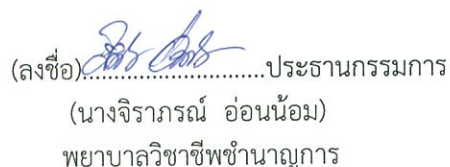 (ลงชื่อ)..............................ประธานกรรมการ
(นางจิราภรณ์ อ่อนน้อม)
พยาบาลวิชาชีพชำนาญการ